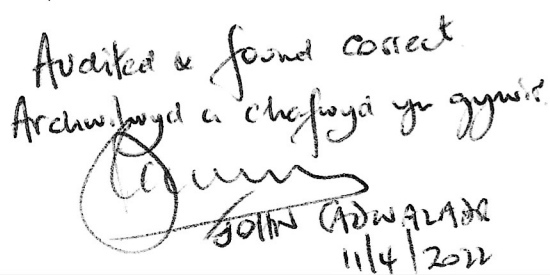 Audited & found correct
Archwiliwyd a chafwyd yn gywir
JOHN CADWALADR
11/4/2022